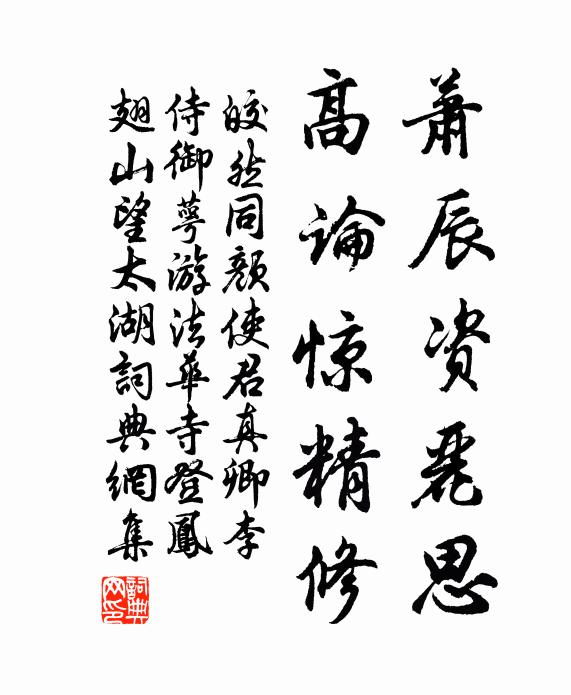 萧辰资麗思
高論惊精修
皎然同颜使君真卿李
侍御萼游法華寺登鳳
翅山望太湖詞典網集
詞典
网印